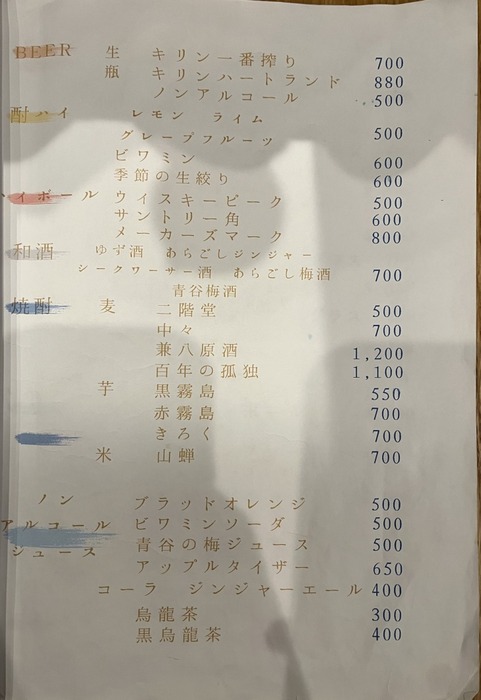 BEER 生 キリン一番搾り 700
瓶 キリンハートランド 880
ノンアルコール 500
酎ハイ レモン ライム
グレープフルーツ 500
ビワミン 600
季節の生絞り 600
ハイボール ウイスキーピーク 500
サントリー角 600
メーカーズマーク 800
和酒 ゆず酒 あらごしジンジャー
シークワーサー酒 あらごし梅酒 700
青谷梅酒
焼酎 麦 二階堂 500
中々 700
兼八原酒 1,200
百年の孤独 1,100
芋 黒霧島 550
赤霧島 700
きろく 700
米 山蝉 700
ノン ブラッドオレンジ 500
アルコール ビワミンソーダ 500
ジュース 青谷の梅ジュース 500
アップルタイザー 650
コーラ ジンジャーエール 400
烏龍茶 300
黒烏龍茶 400